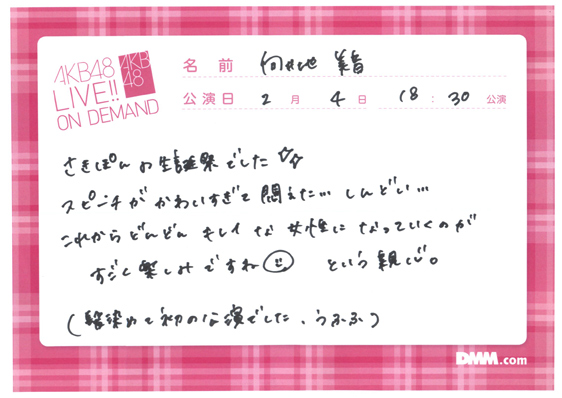 AKB48
LIVE!!
ON DEMAND
AKB
48
名前 向井地 美音
公演日 2月 4日 18:30 公演
さきぽんお生誕祭でした☆☆
スピーチがかわいすぎて悶えた… しんどい…
これからどんどんキレイな女性になっていくのが
すごく楽しみですね という親心。
(髪染めて初の公演でした、うふふ)
DMM.com